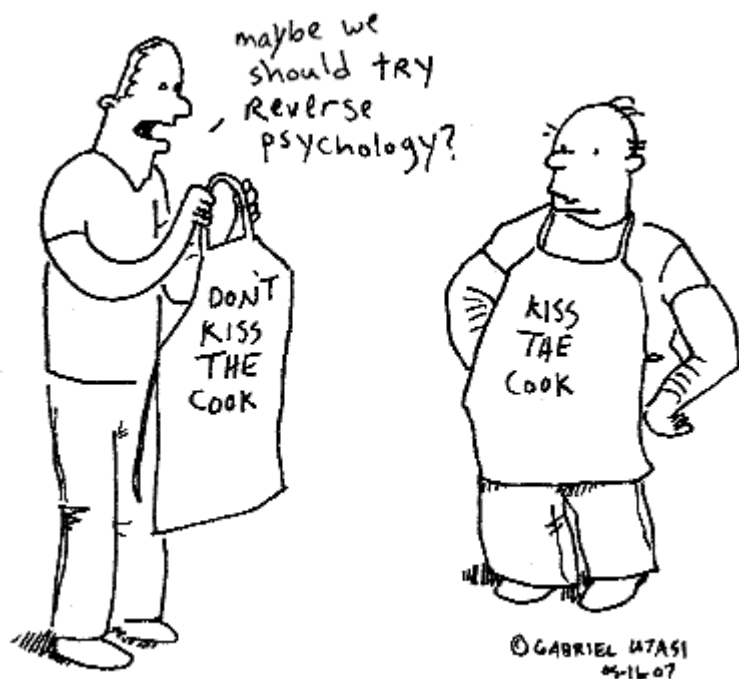 maybe we
should try
Reverse
psychology?
DON'T
KISS
THE
COOK
KISS
THE
COOK
© GABRIEL UTASI
05-16-07